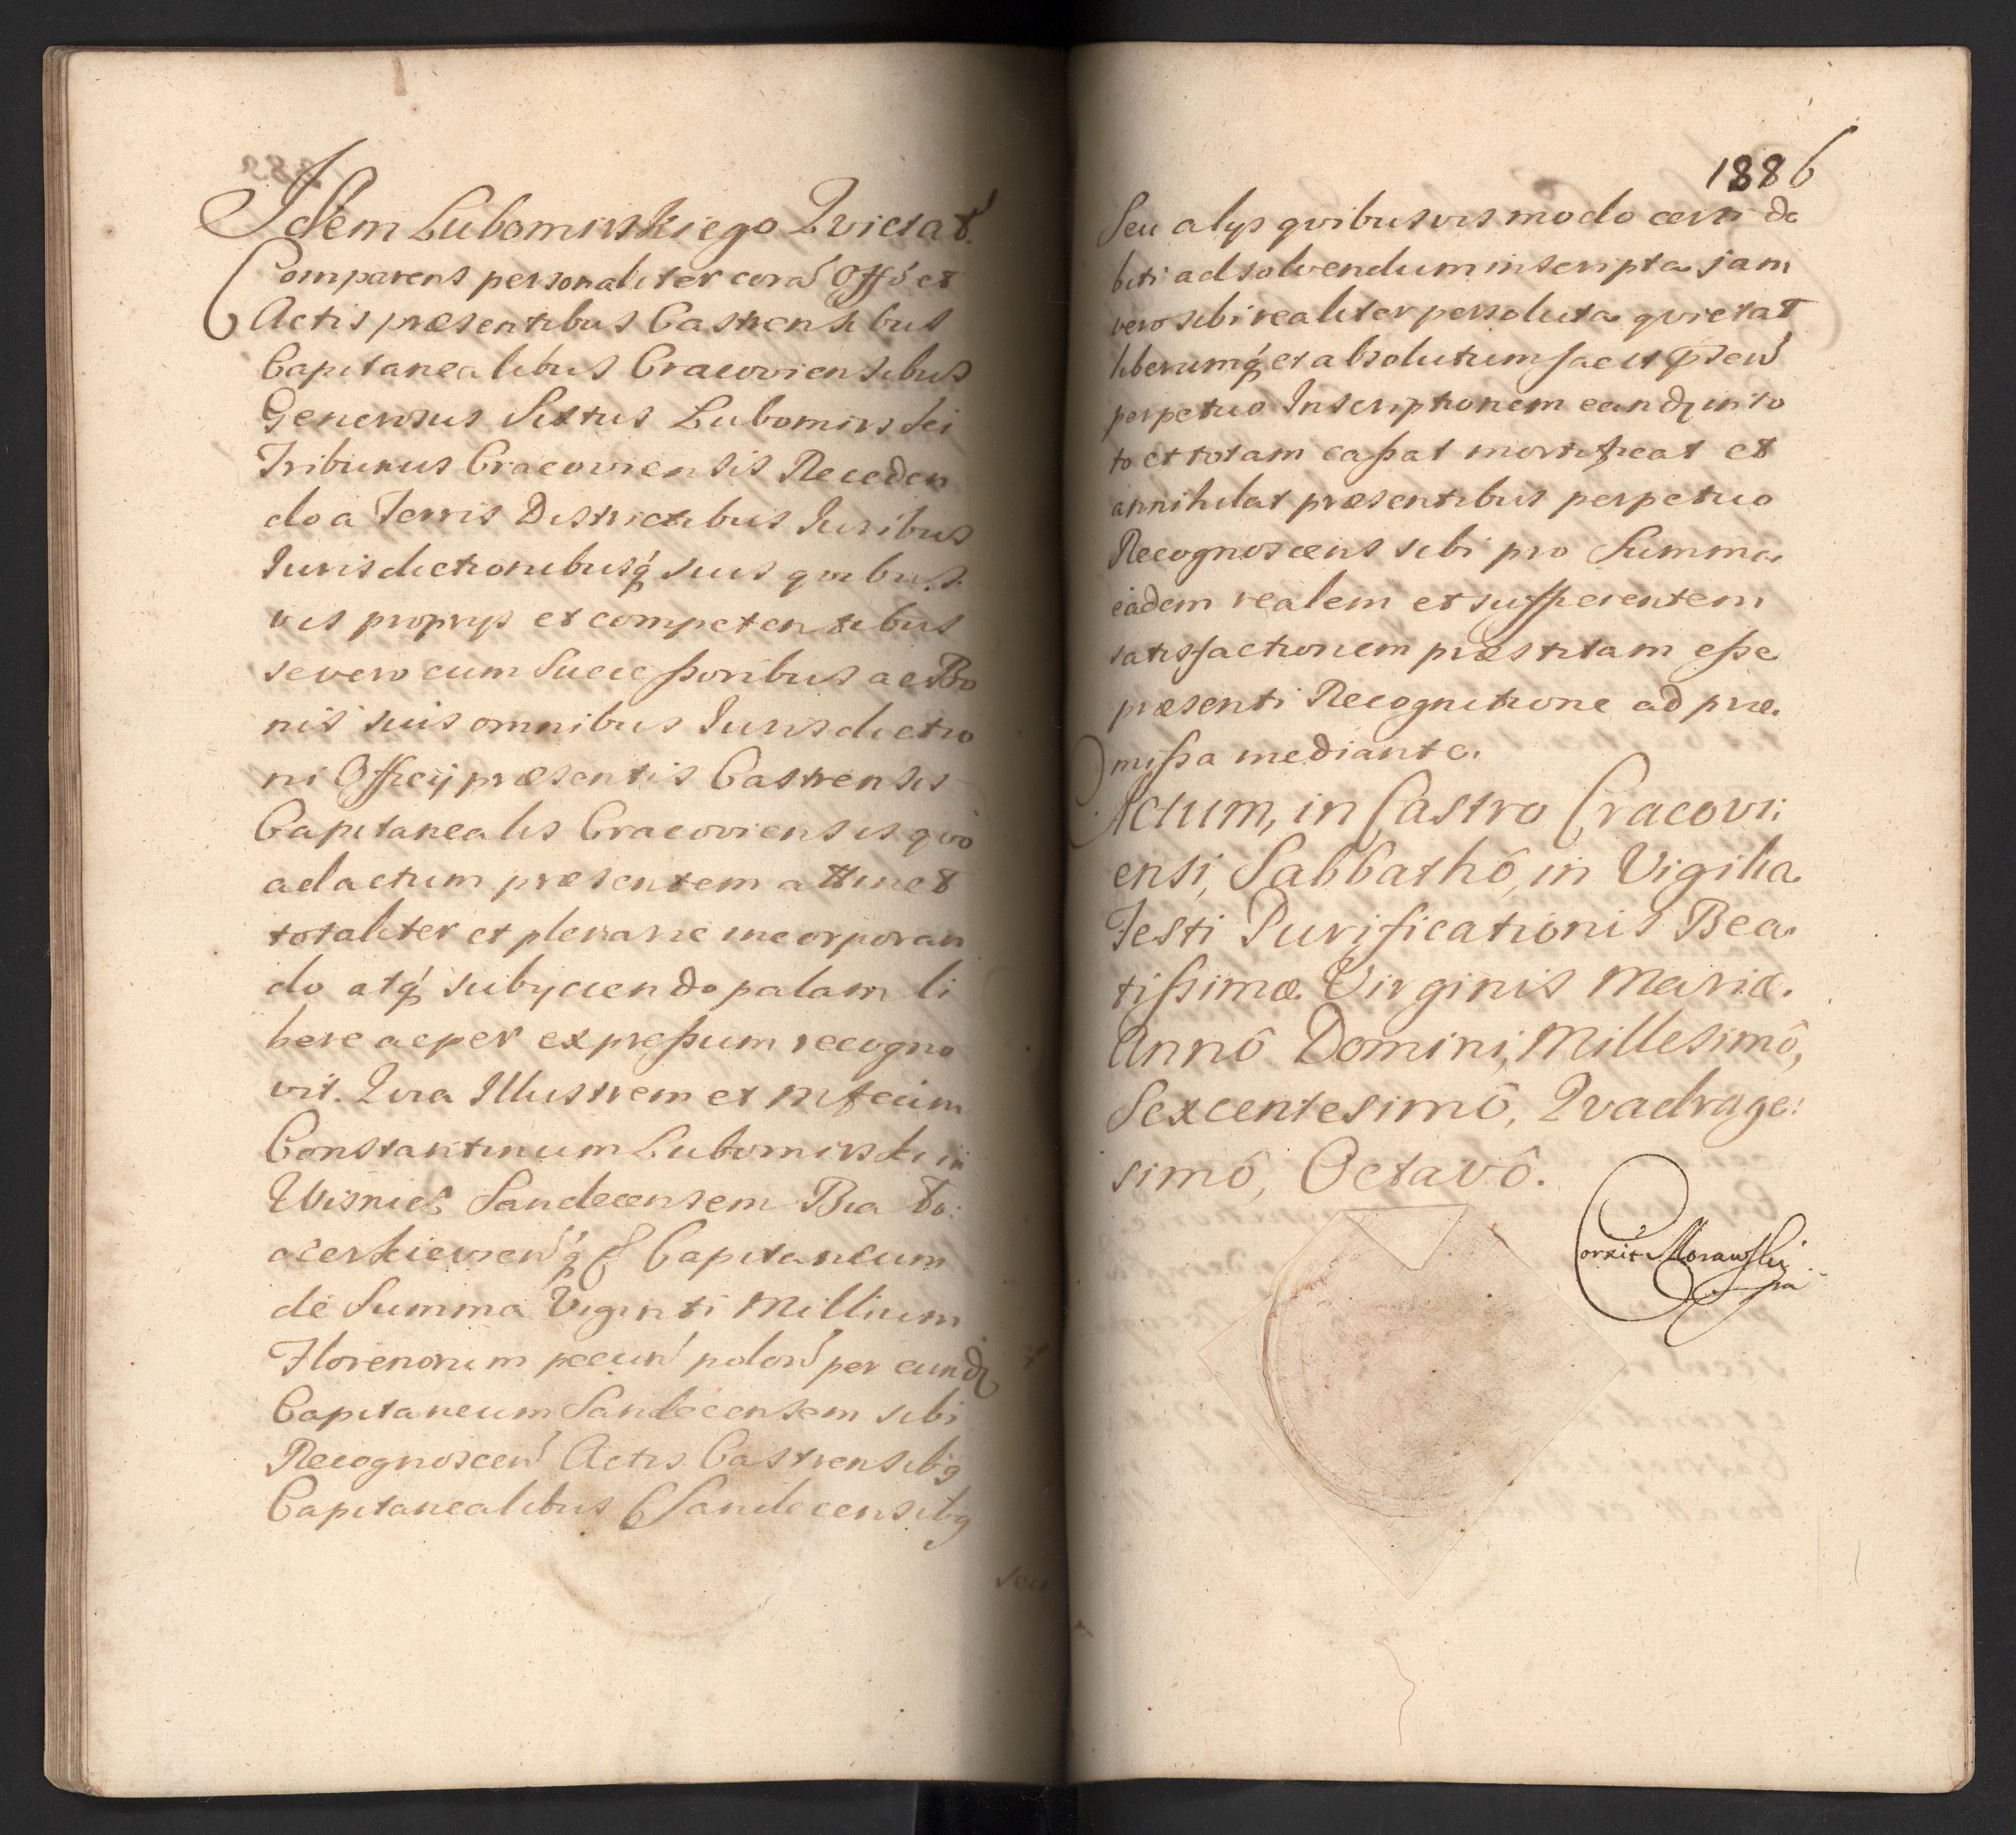 Idem Lubomirskiego Qvietat.
Comparens personaliter corā Offō et
Actis præsentibus Castrensibus
Capitanealibus Cracoviensibus
Generosus Sixtus Lubomirski
Tribunus Cracoviensis Receden
do a Terris Districtibus Iuribus
Iurisdictionibusq́ suis quibus
vis proprijs et competentibus
se vero cum Successoribus ac Bo
nis suis omnibus Iurisdictio
ni Officij præsentis Castrensis
Capitanealis Cracoviensis qvo
ad actum præsentem attinet
totaliter et plenarie incorporan
do atq́ subijciendo palam li
bere ac per expressum recogno
vit. Qvia Illustrem et Mfcum
Constantinum Lubomirski in
Wisnicz Sandecensem Bia ło:
cerkieviēn q́ Capitaneum
de Summa Viginti Millium
Florenorum pecuń poloń per eundꝫ
Capitaneum Sandecensem sibi
Recognosceń Actis Castrensibꝯ
Capitanealibus Sandecensibꝯ
seu
1886
Seu alijs qvibusvis modo certi de
biti ad solvendum inscripta jam
vero sibi realiter persoluta qvietat
liberumq́ et absolutum facit p̄seń
perpetuo Inscriptionem eandꝫ in to
to et totam cassat mortificat et
annihilat præsentibus perpetuo
Recognoscens sibi pro Summa
eadem realem et sufficientem
satisfactionem præstitam esse
præsenti Recognitione ad præ.
missa mediante.
Actum, in Castro Cracovi:
ensi, Sabbathô, in Vigilia
Festi Purificationis Bea.
tissimæ Virginis Mariæ.
Annô Domini, Millesimô,
Sexcentesimô, Qvadrage:
simô, Octavô.
Correxit Morawski